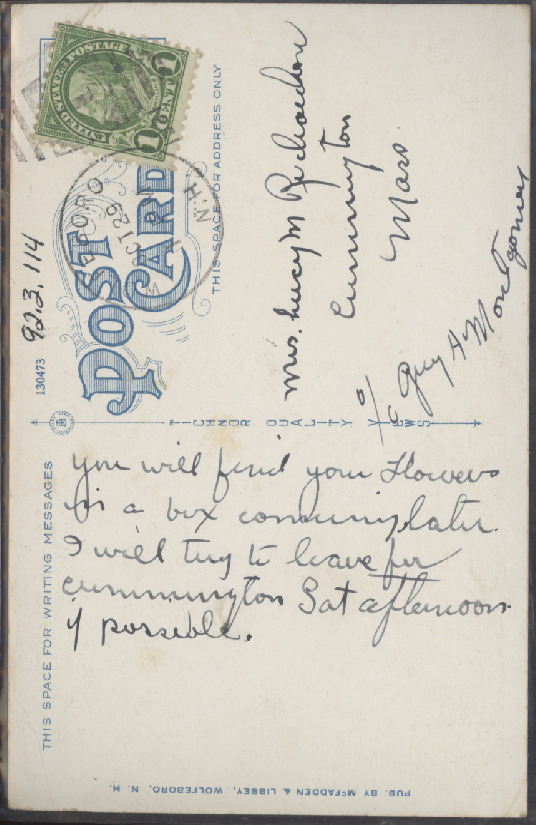 POST CARD
THIS SPACE FOR ADDRESS ONLY
UNITED STATES POSTAGE
1 CENT 1
OCT 29
N.H.
92.3.114
130473
Mrs. Lucy M Richardson
Cummington
Mass
c/o Guy A Montgomery
TICHNOR QUALITY VIEWS
THIS SPACE FOR WRITING MESSAGES
you will find your flowers
in a box comming later.
I will try to leave for
cummington Sat afternoon
if possible.
PUB. BY McFADDEN & LIBBEY, WOLFEBORO, N. H.